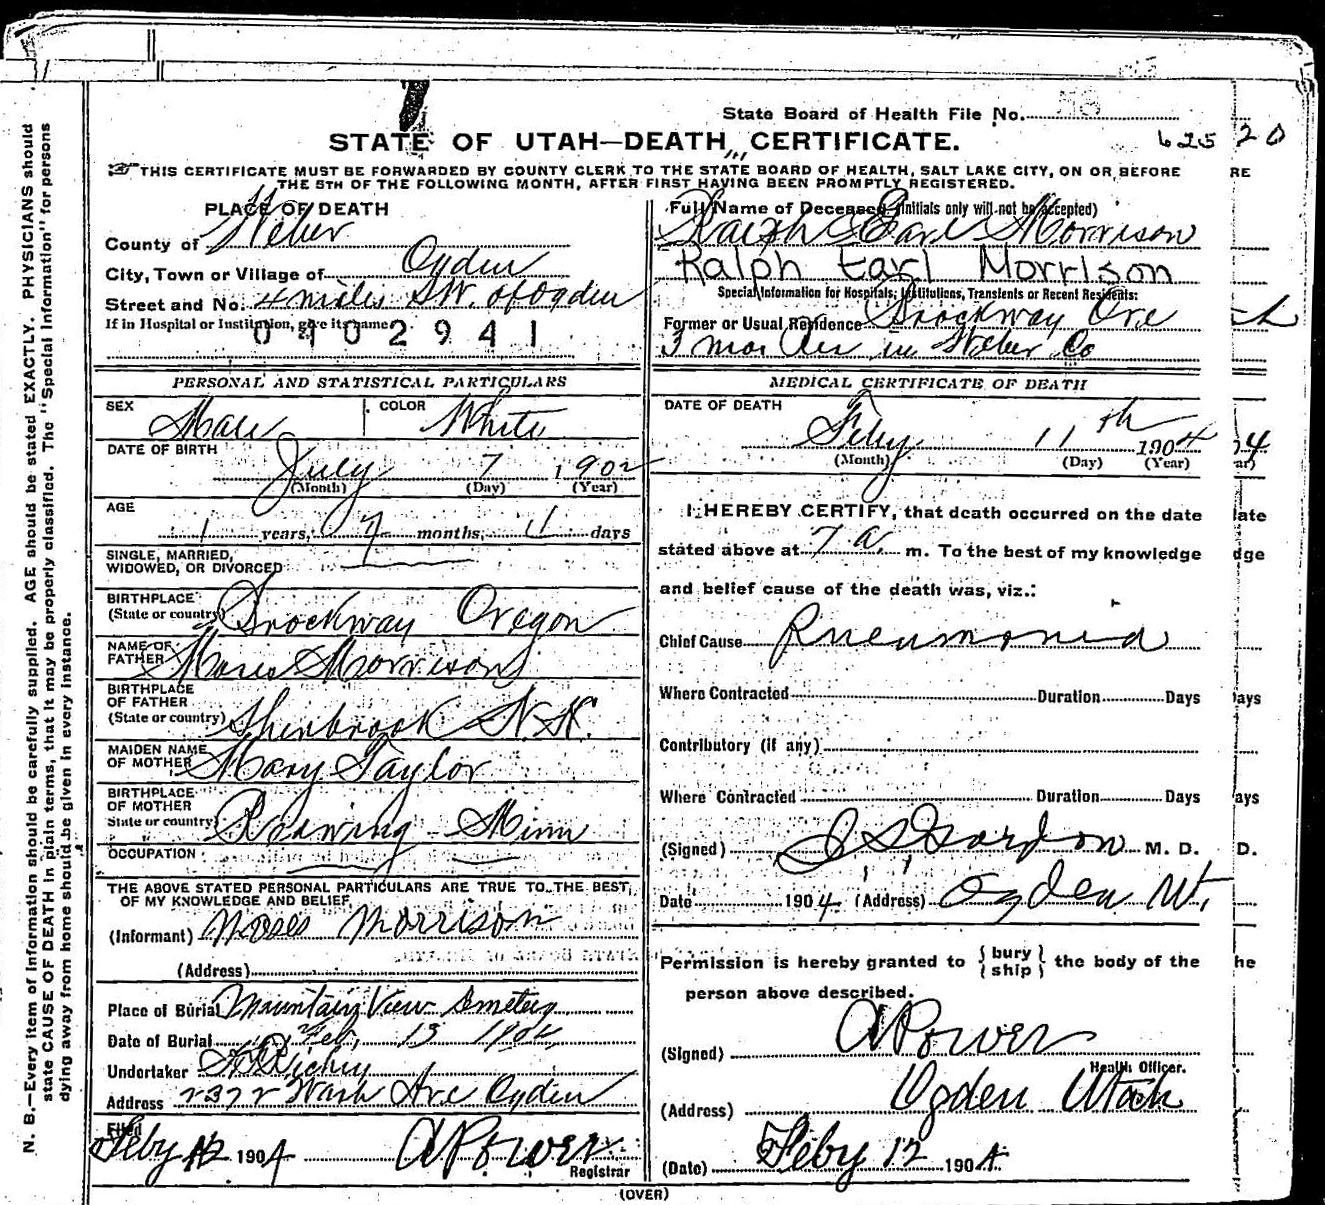 State Board of Health File No.
STATE OF UTAH—DEATH CERTIFICATE. 625 20
THIS CERTIFICATE MUST BE FORWARDED BY COUNTY CLERK TO THE STATE BOARD OF HEALTH, SALT LAKE CITY, ON OR BEFORE RE
THE 5TH OF THE FOLLOWING MONTH, AFTER FIRST HAVING BEEN PROMPTLY REGISTERED.
N. B.—Every item of information should be carefully supplied. AGE should be stated EXACTLY. PHYSICIANS should
state CAUSE OF DEATH in plain terms, that it may be properly classified. The "Special Information" for persons
dying away from home should be given in every instance.
PLACE OF DEATH
County of Weber
City, Town or Village of Ogden
Street and No. 4 miles SW. of Ogden
If in Hospital or Institution, give its name
0402941
PERSONAL AND STATISTICAL PARTICULARS
SEX Male COLOR White
DATE OF BIRTH
July 7 1902
(Month) (Day) (Year)
AGE
1 years, 7 months, 4 days
SINGLE, MARRIED,
WIDOWED, OR DIVORCED
BIRTHPLACE
(State or country) Brockway Oregon
NAME OF
FATHER Moses Morrison
BIRTHPLACE
OF FATHER
(State or country)
MAIDEN NAME
OF MOTHER Mary Taylor
BIRTHPLACE
OF MOTHER
State or country) Redwing Minn
OCCUPATION
THE ABOVE STATED PERSONAL PARTICULARS ARE TRUE TO THE BEST
OF MY KNOWLEDGE AND BELIEF
(Informant) Moses Morrison
(Address)
Place of Burial Mountain View Cemetery
Date of Burial Feb, 13 1904
Undertaker Richey
Address 2372 Wash Ave Ogden
Filed
Feby 12 1904 A Power
Registrar
Full Name of Deceased (Initials only will not be accepted)
Ralph Earl Morrison
Ralph Earl Morrison
Special Information for Hospitals, Institutions, Transients or Recent Residents:
Former or Usual Residence Brockway Ore
3 mos in Weber Co
MEDICAL CERTIFICATE OF DEATH
DATE OF DEATH
Feby 11th 1904
(Month) (Day) (Year)
I HEREBY CERTIFY, that death occurred on the date
stated above at 7 a. m. To the best of my knowledge
and belief cause of the death was, viz.:
Chief Cause Pneumonia
Where Contracted Duration Days
Contributory (if any)
Where Contracted Duration Days
(Signed) Gordon M. D.
Date 1904 (Address) Ogden Ut,
Permission is hereby granted to { bury ship } the body of the
person above described.
(Signed) A Power
Health Officer.
(Address) Ogden Utah
(Date) Feby 12 1904
(OVER)